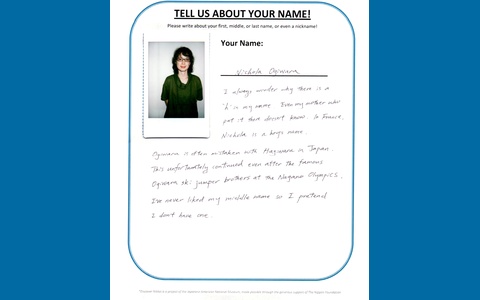 TELL US ABOUT YOUR NAME!
Please write about your first, middle, or last name, or even a nickname!
Your Name:
Nichola Ogiwara
I always wonder why there is a
'h' in my name. Even my mother who
put it there doesn't know. In France,
Nichola is a boys name.
Ogiwara is often mistaken with Hagiwara in Japan.
This unfortunately continued even after the famous
Ogiwara ski jumper brothers at the Nagano Olympics.
I've never liked my middle name so I pretend
I don't have one.